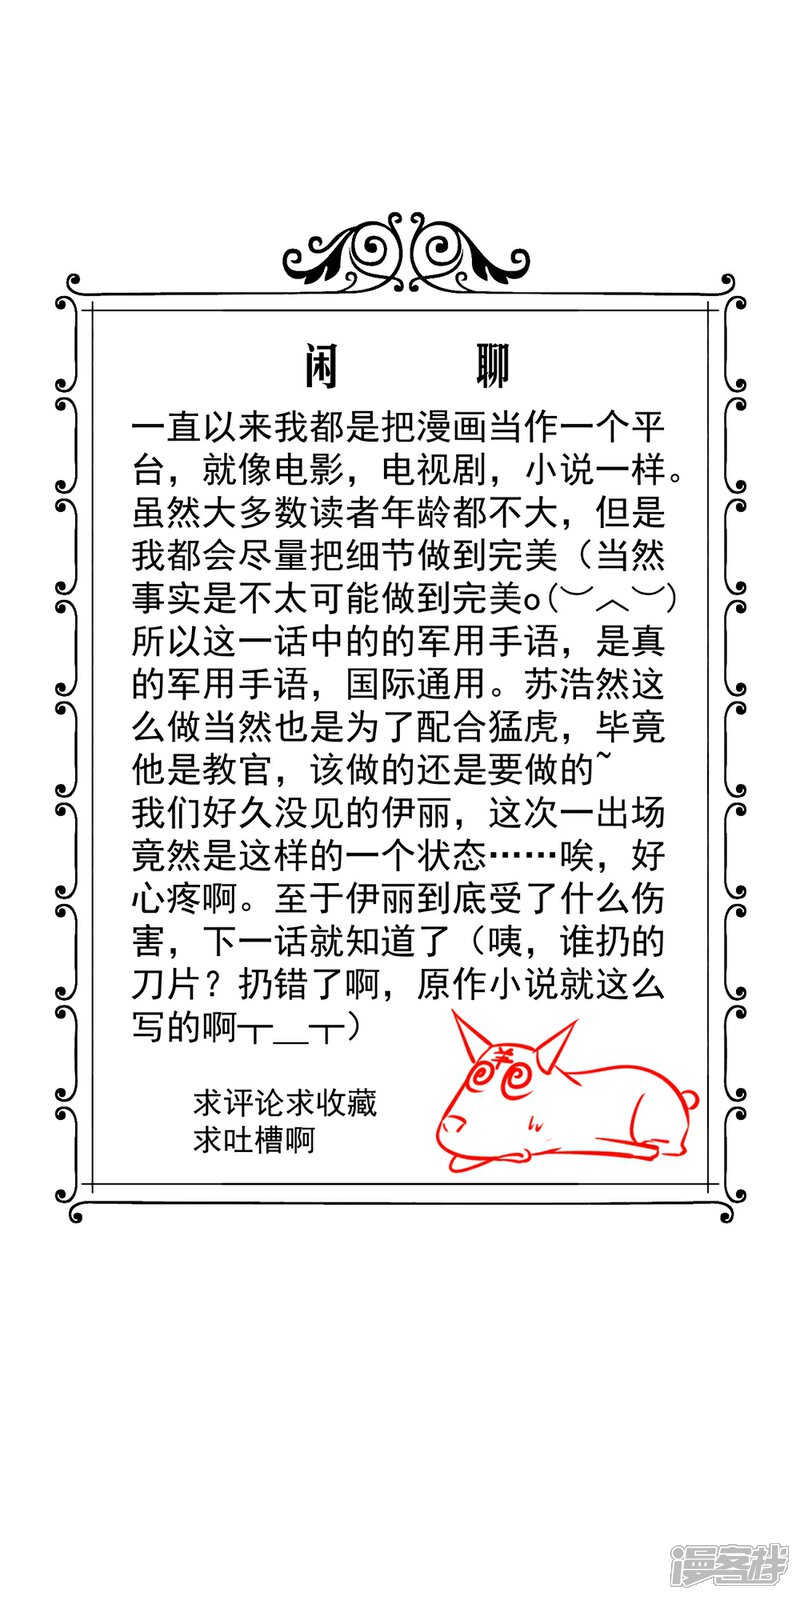 闲 聊
一直以来我都是把漫画当作一个平
台，就像电影，电视剧，小说一样。
虽然大多数读者年龄都不大，但是
我都会尽量把细节做到完美（当然
事实是不太可能做到完美o(︶︿︶)
所以这一话中的的军用手语，是真
的军用手语，国际通用。苏浩然这
么做当然也是为了配合猛虎，毕竟
他是教官，该做的还是要做的~
我们好久没见的伊丽，这次一出场
竟然是这样的一个状态……唉，好
心疼啊。至于伊丽到底受了什么伤
害，下一话就知道了（咦，谁扔的
刀片？扔错了啊，原作小说就这么
写的啊┬＿┬）
求评论求收藏
求吐槽啊
漫客栈